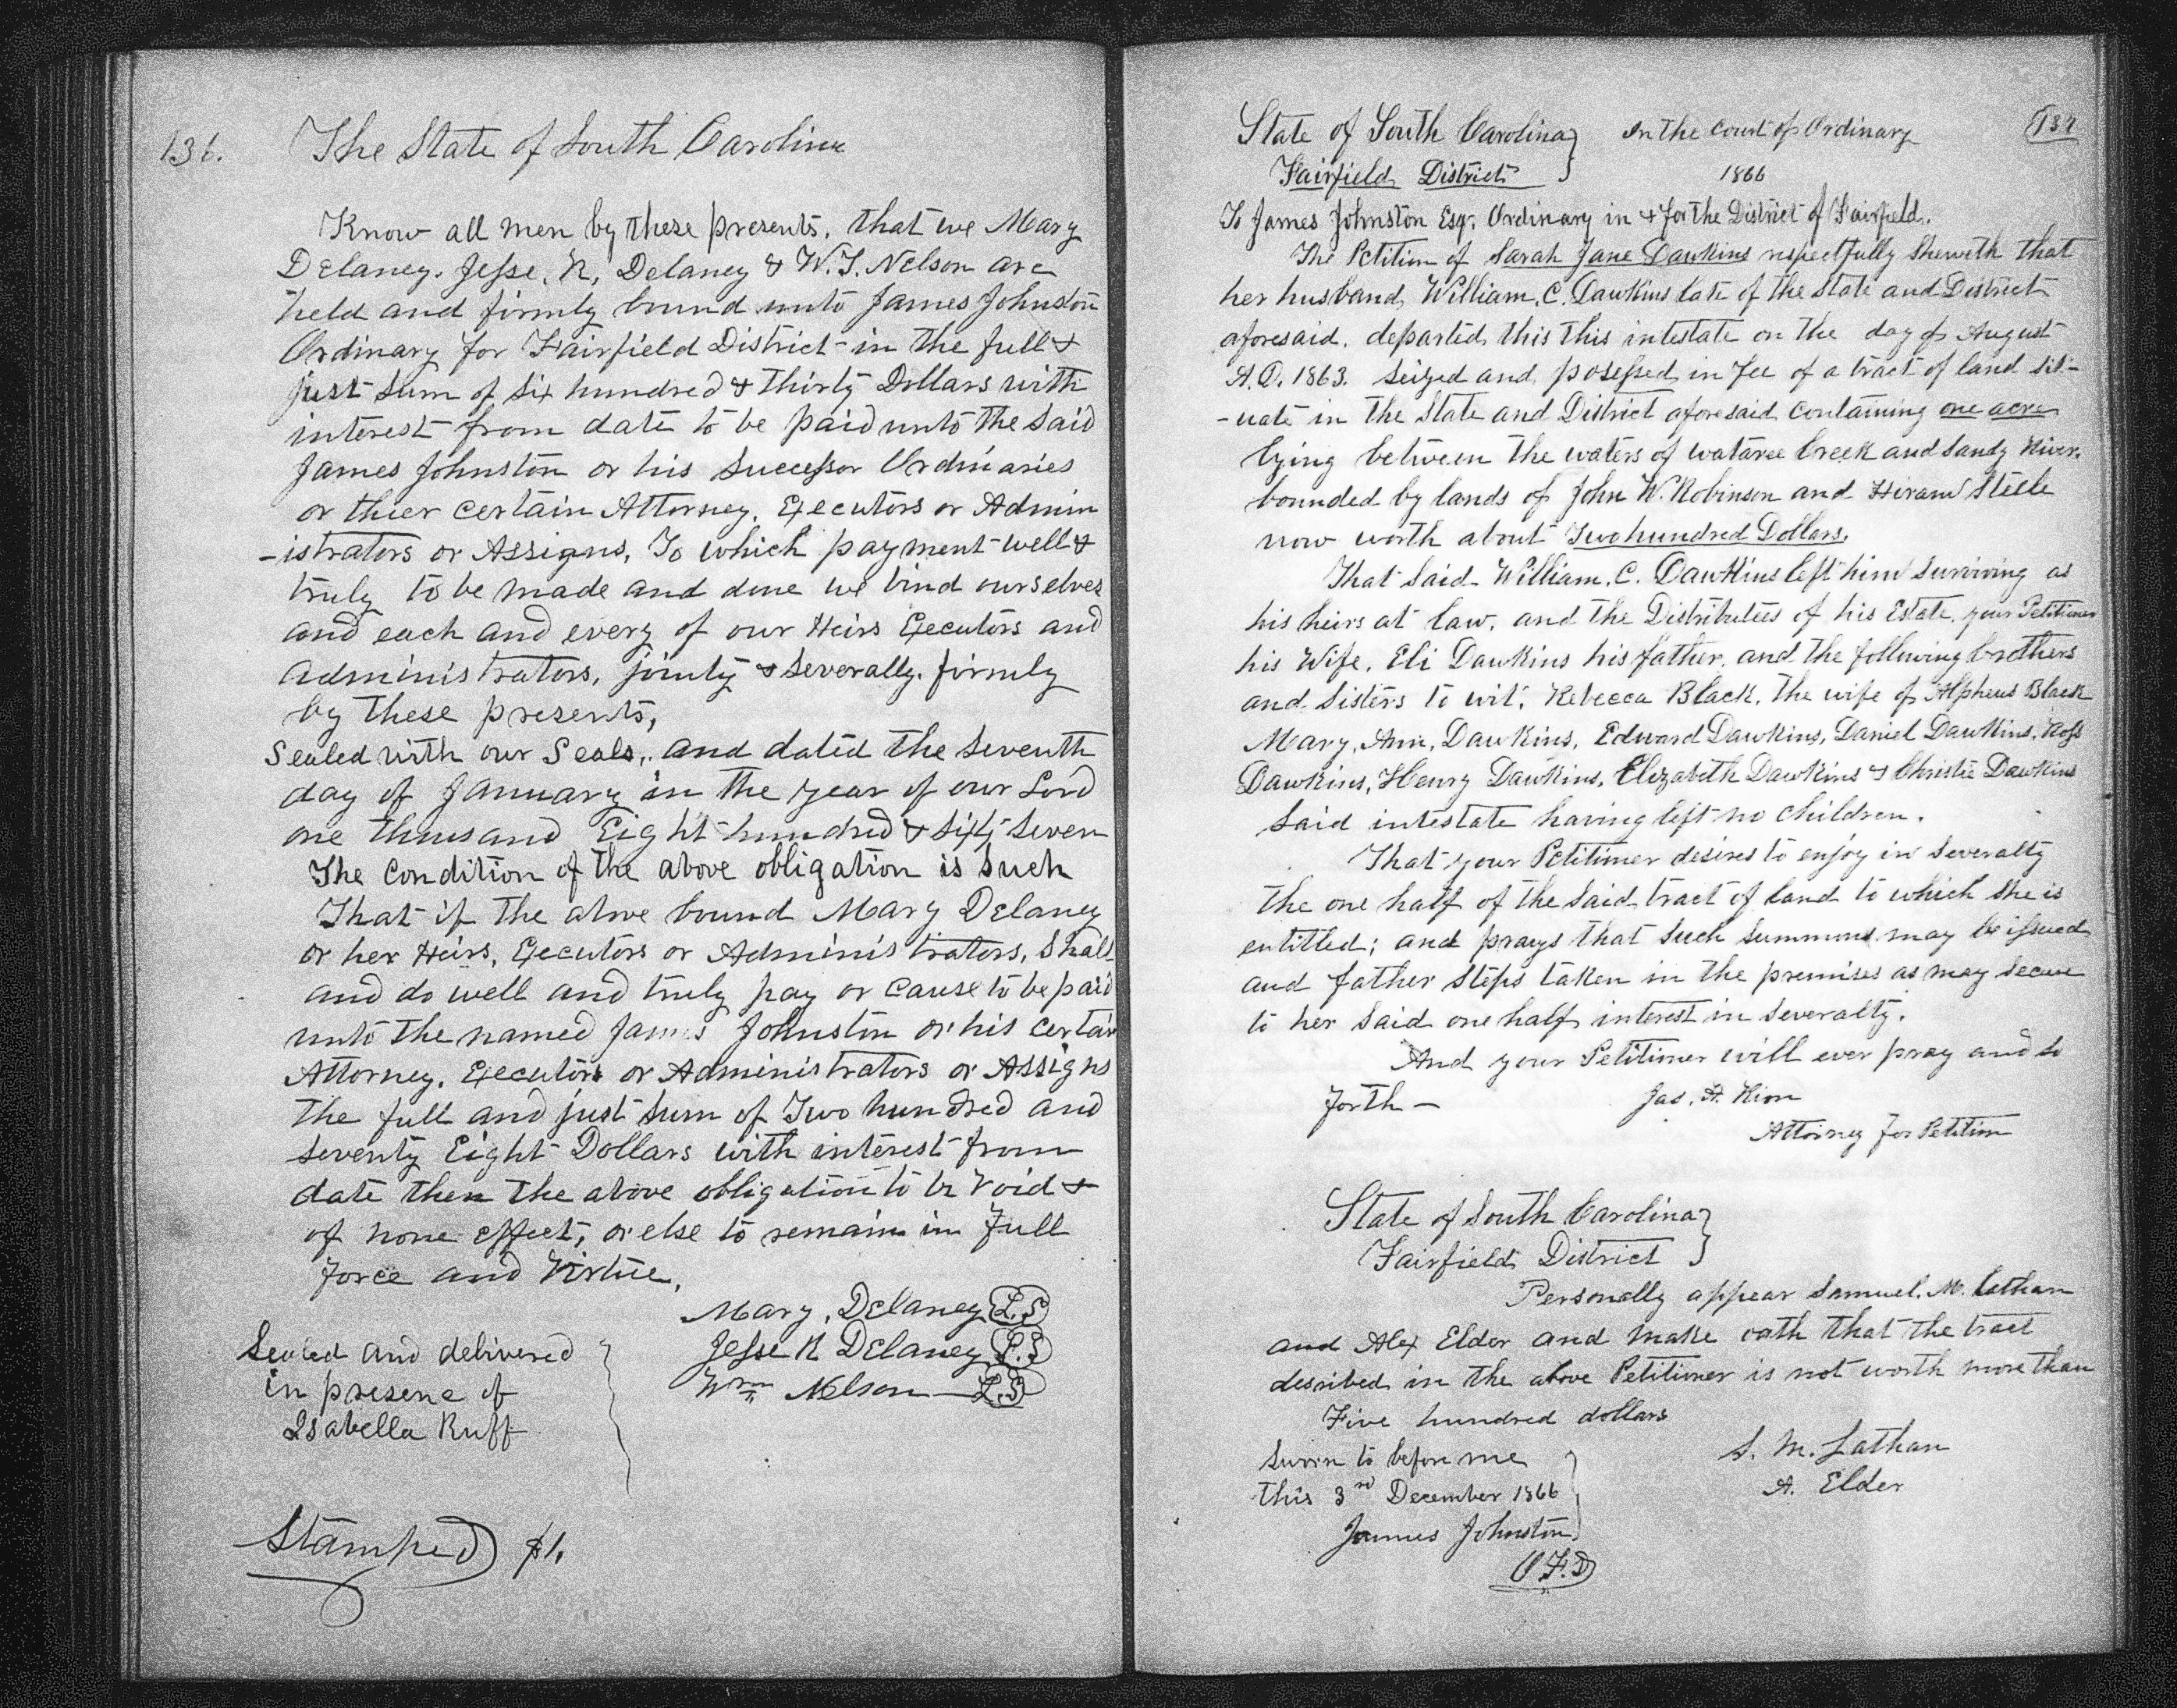 136.
The State of South Carolina
Know all men by these presents, that we Mary
Delaney. Jesse. R, Delaney & W. J. Nelson are
held and firmly bound unto James Johnston
Ordinary for Fairfield District in the full &
just sum of six hundred & thirty Dollars with
interest from date to be paid unto the said
James Johnston or his Successor Ordinaries
or thier certain Attorney, Executors or Admin
-istrators or Assigns, To which payment well &
truly to be made and done we bind ourselves
and each and every of our Heirs Executors and
administrators, jointy & severally. firmly
by these presents,
Sealed with our Seals, and dated the seventh
day of January in the year of our Lord
one thousand Eight hundred & sixty seven
The Condition of the above obligation is such
That if the above bound Mary Delaney
or her Heirs, Executors or Administrators, Shall
and do well and truly pay or cause to be paid
unto the named James Johnston or his certain
Attorney, Executors or Administrators or Assigns
the full and just sum of Two hundred and
seventy Eight Dollars with interest from
date then the above obligation to be void &
of none effect, or else to remain in full
force and Virtue,
Mary, Delaney L.S
Jesse R Delaney L.S
Wm Nelson L.S
Sealed and delivered
in presene of
Isabella Ruff
Stamped $1,
137
State of South Carolina } In the Court of Ordinary
Fairfield District } 1866
To James Johnston Esq. Ordinary in & for the District of Fairfield.
The Petition of Sarah Jane Dawkins respectfully sheweth that
her husband, William. C. Dawkins late of the State and District
aforesaid. departed this this intestate on the day of August
A.D. 1863. seized and posessed in Fee of a tract of land sit-
-uate in the State and District aforesaid containing one acre
lying between the waters of wataree Creek and Sandy River.
bounded by lands of John W. Robinson and Hiram Steele
now worth about Two hundred Dollars.
That said William. C. Dawkins left him surviving as
his heirs at law, and the Distributees of his Estate, your Petitioner
his Wife, Eli Dawkins his father, and the following brothers
and sisters to wit, Rebecca Black, the wife of Alpheus Black
Mary, Ann, Dawkins, Edward Dawkins, Daniel Dawkins, Ross
Dawkins, Henry Dawkins, Elizabeth Dawkins & Christie Dawkins
said intestate having left no children.
That your Petitioner desires to enjoy in severalty
the one half of the said tract of land to which she is
entitled; and prays that such summons may be issued
and father steps taken in the premises as may secure
to her said one half interest in severalty.
And your Petitioner will ever pray and so
forth —
Jas. H. Rion
Attorney for Petition
State of South Carolina }
Fairfield District }
Personally appear Samuel. M. Lathan
and Alex Elder and make oath that the tract
desribed in the above Petitioner is not worth more than
Five hundred dollars
Sworn to before me
this 3rd December 1866
James Johnston
O F. D
S. M. Lathan
A. Elder